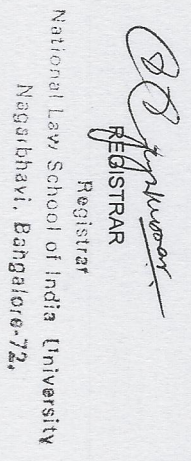 REGISTRAR
Registrar
National Law School of India University
Nagarbhavi, Bangalore-72,